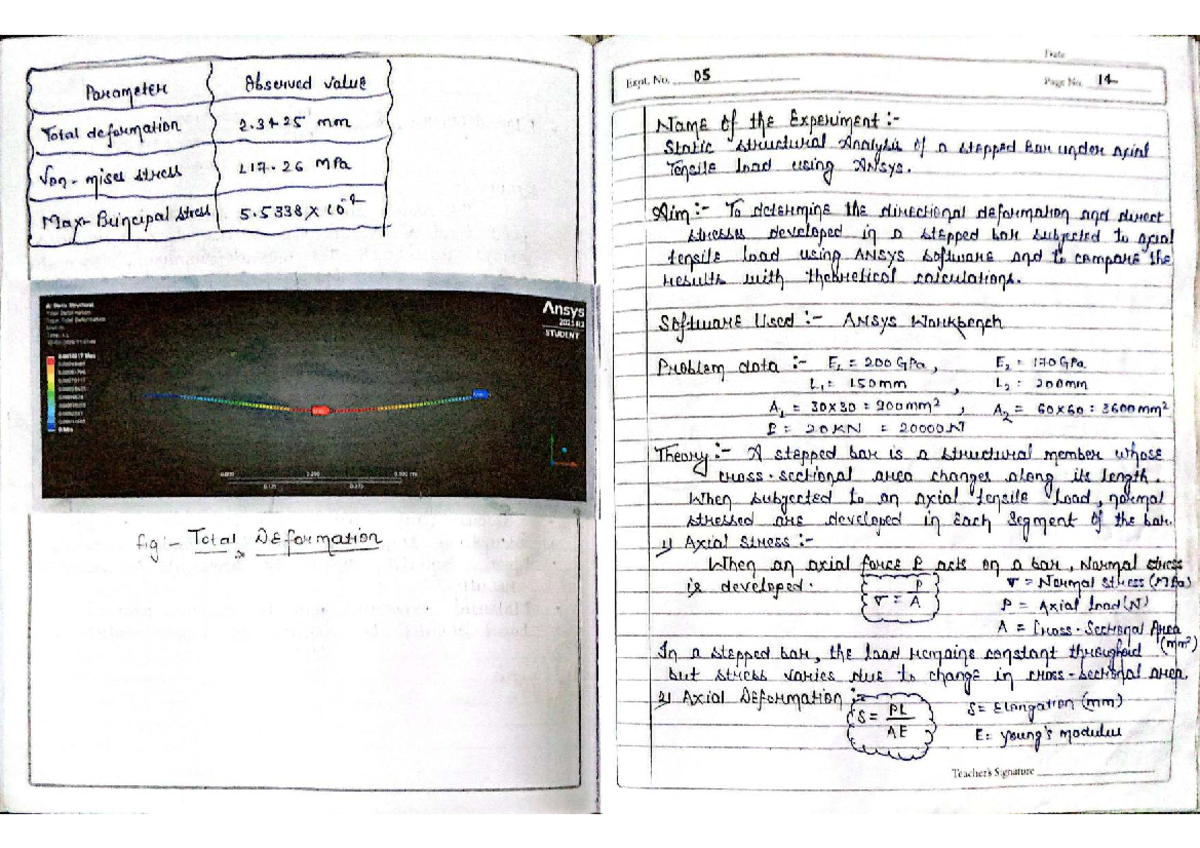 Parameter Observed value
Total deformation 2.3425 mm
Von-mises stress 117.26 MPa
Max-Principal stress 5.5338 × 10⁻⁴
A: Static Structural
Total Deformation
Type: Total Deformation
Ansys
2025 R2
STUDENT
0 Min
0.000 0.250 0.500
0.125 0.375
fig:- Total Deformation
Date
Expt. No. 05
Page No. 14
Name of the Experiment :-
Static structural Analysis of a stepped bar under axial
Tensile load using Ansys.
Aim :- To determine the directional deformation and direct
stresses developed in a stepped bar subjected to axial
tensile load using ANSYS software and to compare the
results with theoretical calculations.
Software Used :- ANSYS Workbench
Problem data :- E₁ = 200 GPa, E₂ = 170 GPa
L₁ = 150mm , L₂ = 200mm
A₁ = 30×30 = 900mm² , A₂ = 60×60 = 3600mm²
P = 20KN = 20000N
Theory :- A stepped bar is a structural member whose
cross-sectional area changes along its length.
When subjected to an axial tensile load, normal
stressed are developed in each segment of the bar.
1) Axial Stress :-
When an axial force P acts on a bar, Normal stress
is developed. σ = P/A σ = Normal stress (MPa)
P = Axial load (N)
A = Cross-Sectional Area
(mm²)
In a stepped bar, the load remains constant throughout
but stress varies due to change in cross-sectional area.
2) Axial Deformation :-
S = PL/AE S = Elongation (mm)
E = young's modulus
Teacher's Signature